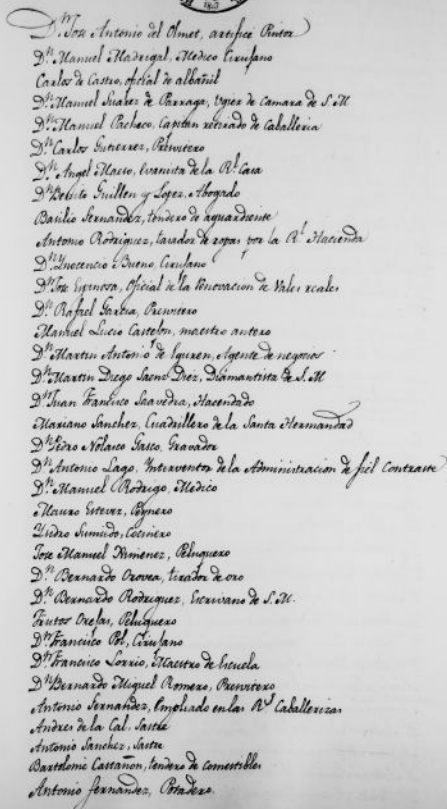 1803
D.n Jose Antonio del Olmet, artifice Pintor
D.n Manuel Madrigal, Medico Cirujano
Carlos de Castro, oficial de albañil
D.n Manuel Suarez de Parraga, Ugier de Camara de S. M
D.n Manuel Pacheco, Capitan retirado de Caballeria
D.n Carlos Gutierrez, Presvitero
D.n Angel Maeso, Evanista de la R.l Casa
D.n Benito Guillen y Lopez, Abogado
Basilio Fernandez, tendero de aguardiente
Antonio Rodriguez, tasador de ropas por la R.l Hacienda
D.n Ynocencio Bueno, Cirujano
D.n Jose Espinosa, Oficial de la Renovacion de Vales reales
D.n Rafael Garcia, Presvitero
Manuel Lucio Castellon, maestro antero
D.n Martin Antonio de Yguren, Agente de negocios
D.n Martin Diego Saenz Diez, Diamantista de S. M
D.n Juan Francisco Saavedra, Hacendado
Mariano Sanchez, Cuadrillero de la Santa Hermandad
D.n Pedro Nolasco Gasco, Gravador
D.n Antonio Lago, Interventor de la Administracion de fiel Contraste
D.n Manuel Rodrigo, Medico
Mauro Estevez, Peynero
Ysidro Cocinero
Jose Manuel Ximenez, Peluquero
D.n Bernardo Orovea, tirador de oro
D.n Bernardo Rodriguez, Escrivano de S. M.
Frutos Orejas, Peluquero
D.n Francisco Pol, Cirujano
D.n Francisco Lorrio, Maestro de Escuela
D.n Bernardo Miguel Romero, Presvitero
Antonio Fernandez, Empleado en las R.s Caballerizas
Andres de la Cal, Sastre
Antonio Sanchez, Sastre
Bartolome Castañon, tendero de comestibles
Antonio Fernandez, Posadero.